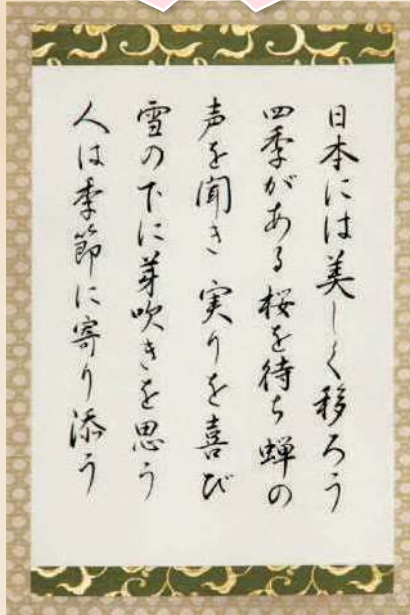 日本には美しく移ろう
四季がある桜を待ち蝉の
声を聞き 実りを喜び
雪の下に芽吹きを思う
人は季節に寄り添う